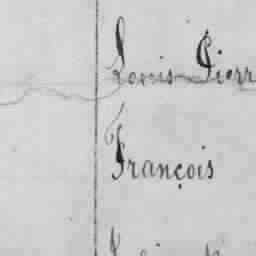 Louis Pierr
François